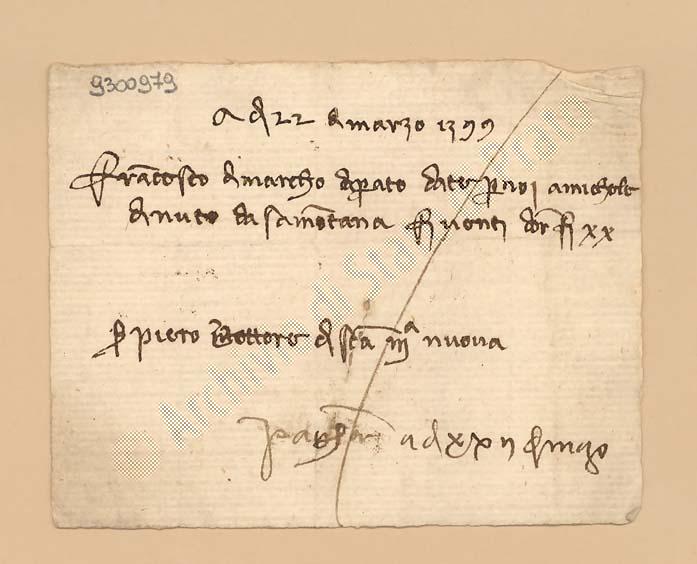 9300979
A dì 22 di marzo 1399
Francescho di Marcho da Prato date per noi a Nichole
di Nuto da Samontana fi venti d'oro fi xx
Ser Piero dottore di Santa Mª Nuova
a dì xxii di marzo
© Archivio di Stato di Prato